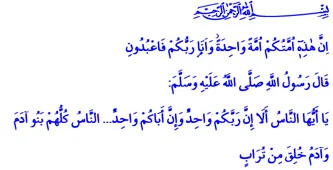 بِسْمِ اللّٰهِ الرَّحْمٰنِ الرَّحِيمِ
اِنَّ هٰذِه۪ٓ اُمَّتُكُمْ اُمَّةً وَاحِدَةًۘ وَاَنَا۬ رَبُّكُمْ فَاعْبُدُونِ
قَالَ رَسُولُ اللَّهِ صَلَّى اللَّهُ عَلَيْهِ وَسَلَّمَ:
يَا أَيُّهَا النَّاسُ أَلَا إِنَّ رَبَّكُمْ وَاحِدٌ وَإِنَّ أَبَاكُمْ وَاحِدٌ... النَّاسُ كُلُّهُمْ بَنُو آدَمَ
وَآدَمُ خُلِقَ مِنْ تُرَابٍ